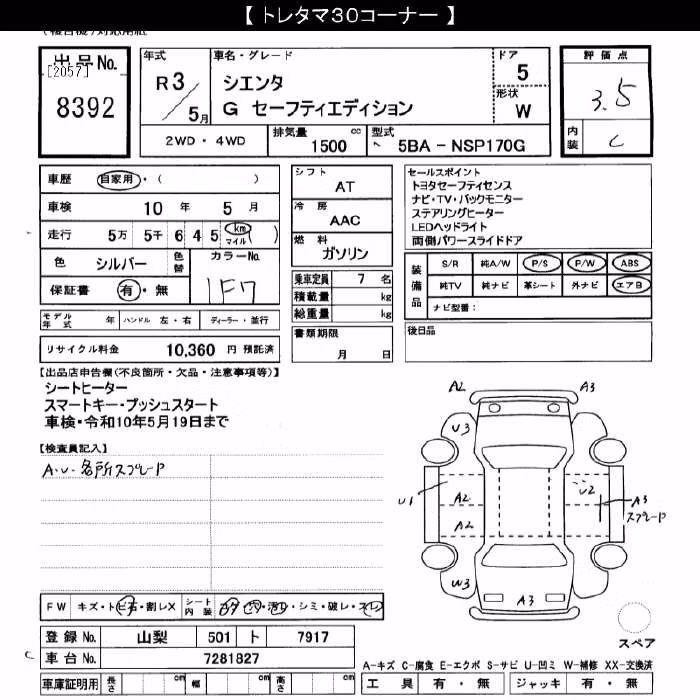 【 トレタマ30コーナー 】
出品No.
[2057]
8392
年式
R3/5月
車名・グレード
シエンタ
G セーフティエディション
ドア
5
形状
W
評価点
3.5
内装
C
2WD・4WD
排気量
1500 cc
型式
5BA-NSP170G
車歴 自家用・( )
車検 10年 5月
走行 5万 5千 6 4 5 km マイル )
色 シルバー 色替 カラーNo.
保証書 有・無 1F7
モデル年式 年 ハンドル 左・右 ディーラー・並行
リサイクル料金 10,360 円 預託済
シフト
AT
冷房
AAC
燃料
ガソリン
乗車定員 7 名
積載量 kg
総重量 kg
書類期限
月 日
セールスポイント
トヨタセーフティセンス
ナビ・TV・バックモニター
ステアリングヒーター
LEDヘッドライト
両側パワースライドドア
装備品
S/R 純A/W P/S P/W ABS
純TV 純ナビ 革シート 外ナビ エアB
ナビ型番：
後日品
【出品店申告欄(不良箇所・欠品・注意事項等)】
シートヒーター
スマートキー・プッシュスタート
車検・令和10年5月19日まで
【検査員記入】
A・U・各所スプレード
A2 A3
U3
U1 A2 U2 A3
スプレード
A2
W3 A3
FW キズ・トビ石・割レX シート内装 コゲ・穴・汚レ・シミ・破レ・スレ
登録No. 山梨 501 ト 7917
C 車台No. 7281827
車庫証明用 長さ cm 幅 cm 高さ cm
スペア
A-キズ C-腐食 E-エクボ S-サビ U-凹ミ W-補修 XX-交換済
工具 有・無 ジャッキ 有・無